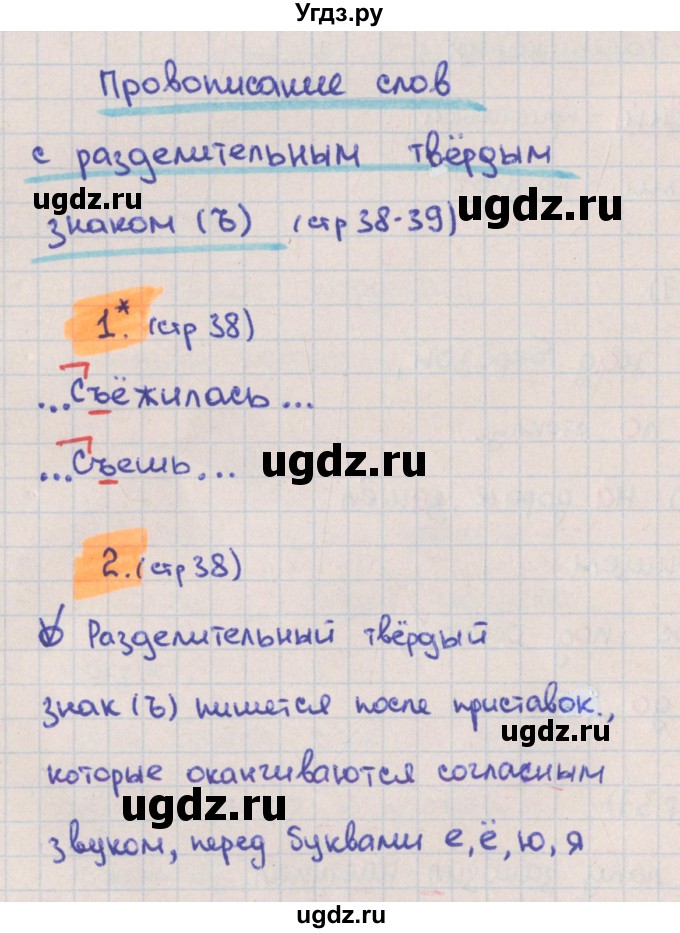 Угдз.ру
Провописание слов
с разделительным твёрдым
ugdz.ru ugdz.ru
знаком (ъ) (стр 38-39)
1.* (стр 38)
...Съёжилась...
...Съешь...
ugdz.ru
2. (стр 38)
Разделительный твёрдый
знак (ъ) пишется после приставок.,
ugdz.ru
которые оканчиваются согласным
ugdz.ru
звуком, перед буквами е, ё, ю, я
ugdz.ru